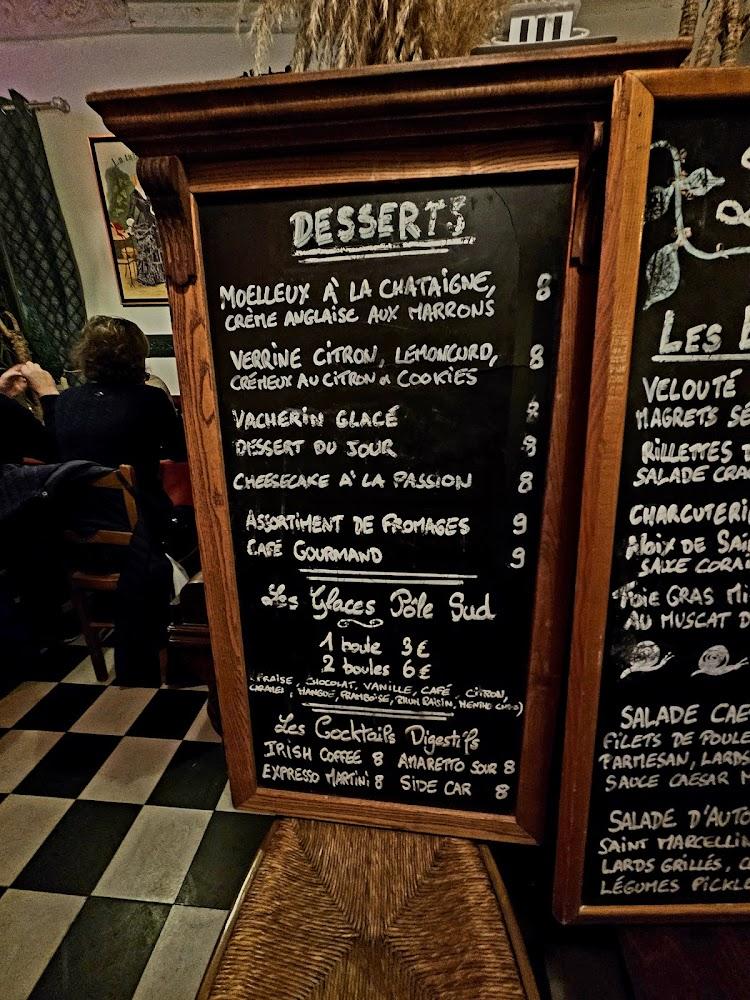 DESSERTS
MOELLEUX À LA CHATAIGNE, 8
CRÈME ANGLAISE AUX MARRONS
VERRINE CITRON, LEMONCURD, 8
CRÉMEUX AU CITRON & COOKIES
VACHERIN GLACÉ 8
DESSERT DU JOUR 8
CHEESECAKE À LA PASSION 8
ASSORTIMENT DE FROMAGES 9
CAFÉ GOURMAND 9
Les Glaces Pôle Sud
1 boule 3€
2 boules 6€
(FRAISE, CHOCOLAT, VANILLE, CAFÉ, CITRON,
CARAMEL, MANGUE, FRAMBOISE, RHUM RAISIN, MENTHE CHOCO)
Les Cocktails Digestifs
IRISH COFFEE 8 AMARETTO SOUR 8
EXPRESSO MARTINI 8 SIDE CAR 8
LES
VELOUTÉ
MAGRETS
RILLETTES
SALADE
CHARCUTERI
NOIX DE
SAUCE
FOIE GRAS
AU MUSCAT
SALADE
FILETS DE
PARMESAN, LARDS
SAUCE CAESAR
SALADE D'AUTO
SAINT MARCELLIN
LARDS GRILLÉS,
LÉGUMES PICKLE